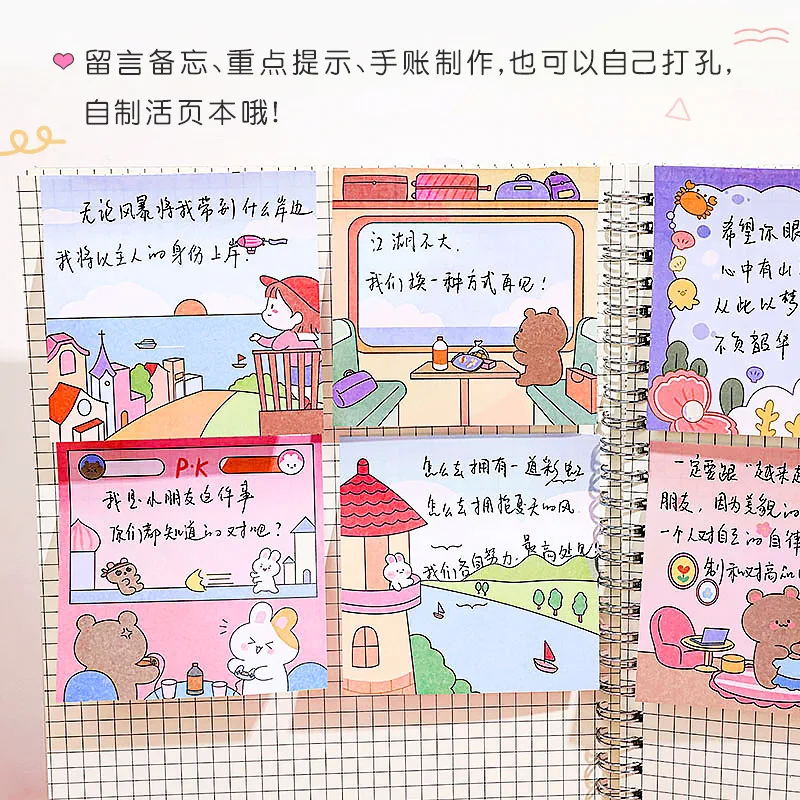 留言备忘、重点提示、手账制作,也可以自己打孔,
自制活页本哦!
无论风暴将我带到什么岸边
我将以主人的身份上岸.
江湖不大.
我们换一种方式再见!
希望你眼
心中有山
从此以梦
不负韶华
P·K
我是小朋友这件事
你们都知道的对吧?
怎么去拥有一道彩虹
怎么去拥抱夏天的风
我们各自努力.最高处见
一定要跟"越来越
朋友，因为美貌的
一个人对自己的自律
制和对高